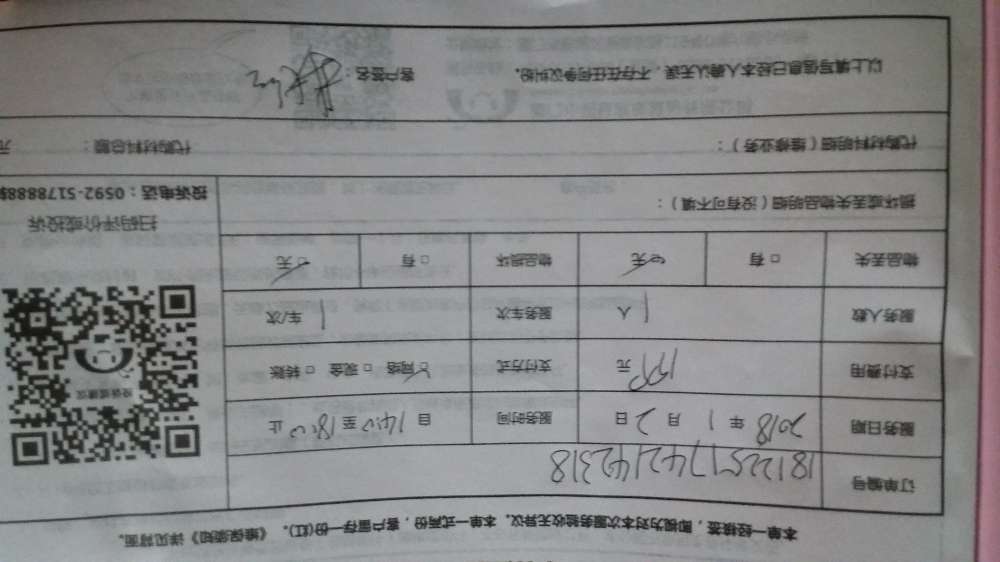 本单一经接签，即视为对本次服务验收无异议。本单一式两份，客户留存一份(红)。《维保须知》详见背面。
订单编号 1812251742142318
服务日期 2018 年 1 月 2 日 服务时间 自 14:0 至 18:0 止
支付费用 199 元 支付方式 ☑网络 □现金 □转账
服务人数 1 人 服务车次 1 车/次
物品丢失 □有 ☑无 物品损坏 □有 ☑无
损坏或丢失物品明细（没有可不填）：
投诉建议
扫码评价或投诉
投诉电话：0592-5178888
代购材料明细（维修业务）： 代购材料总额： 元
以上填写信息已经本人确认无误，不存在任何争议纠纷。 客户签名：